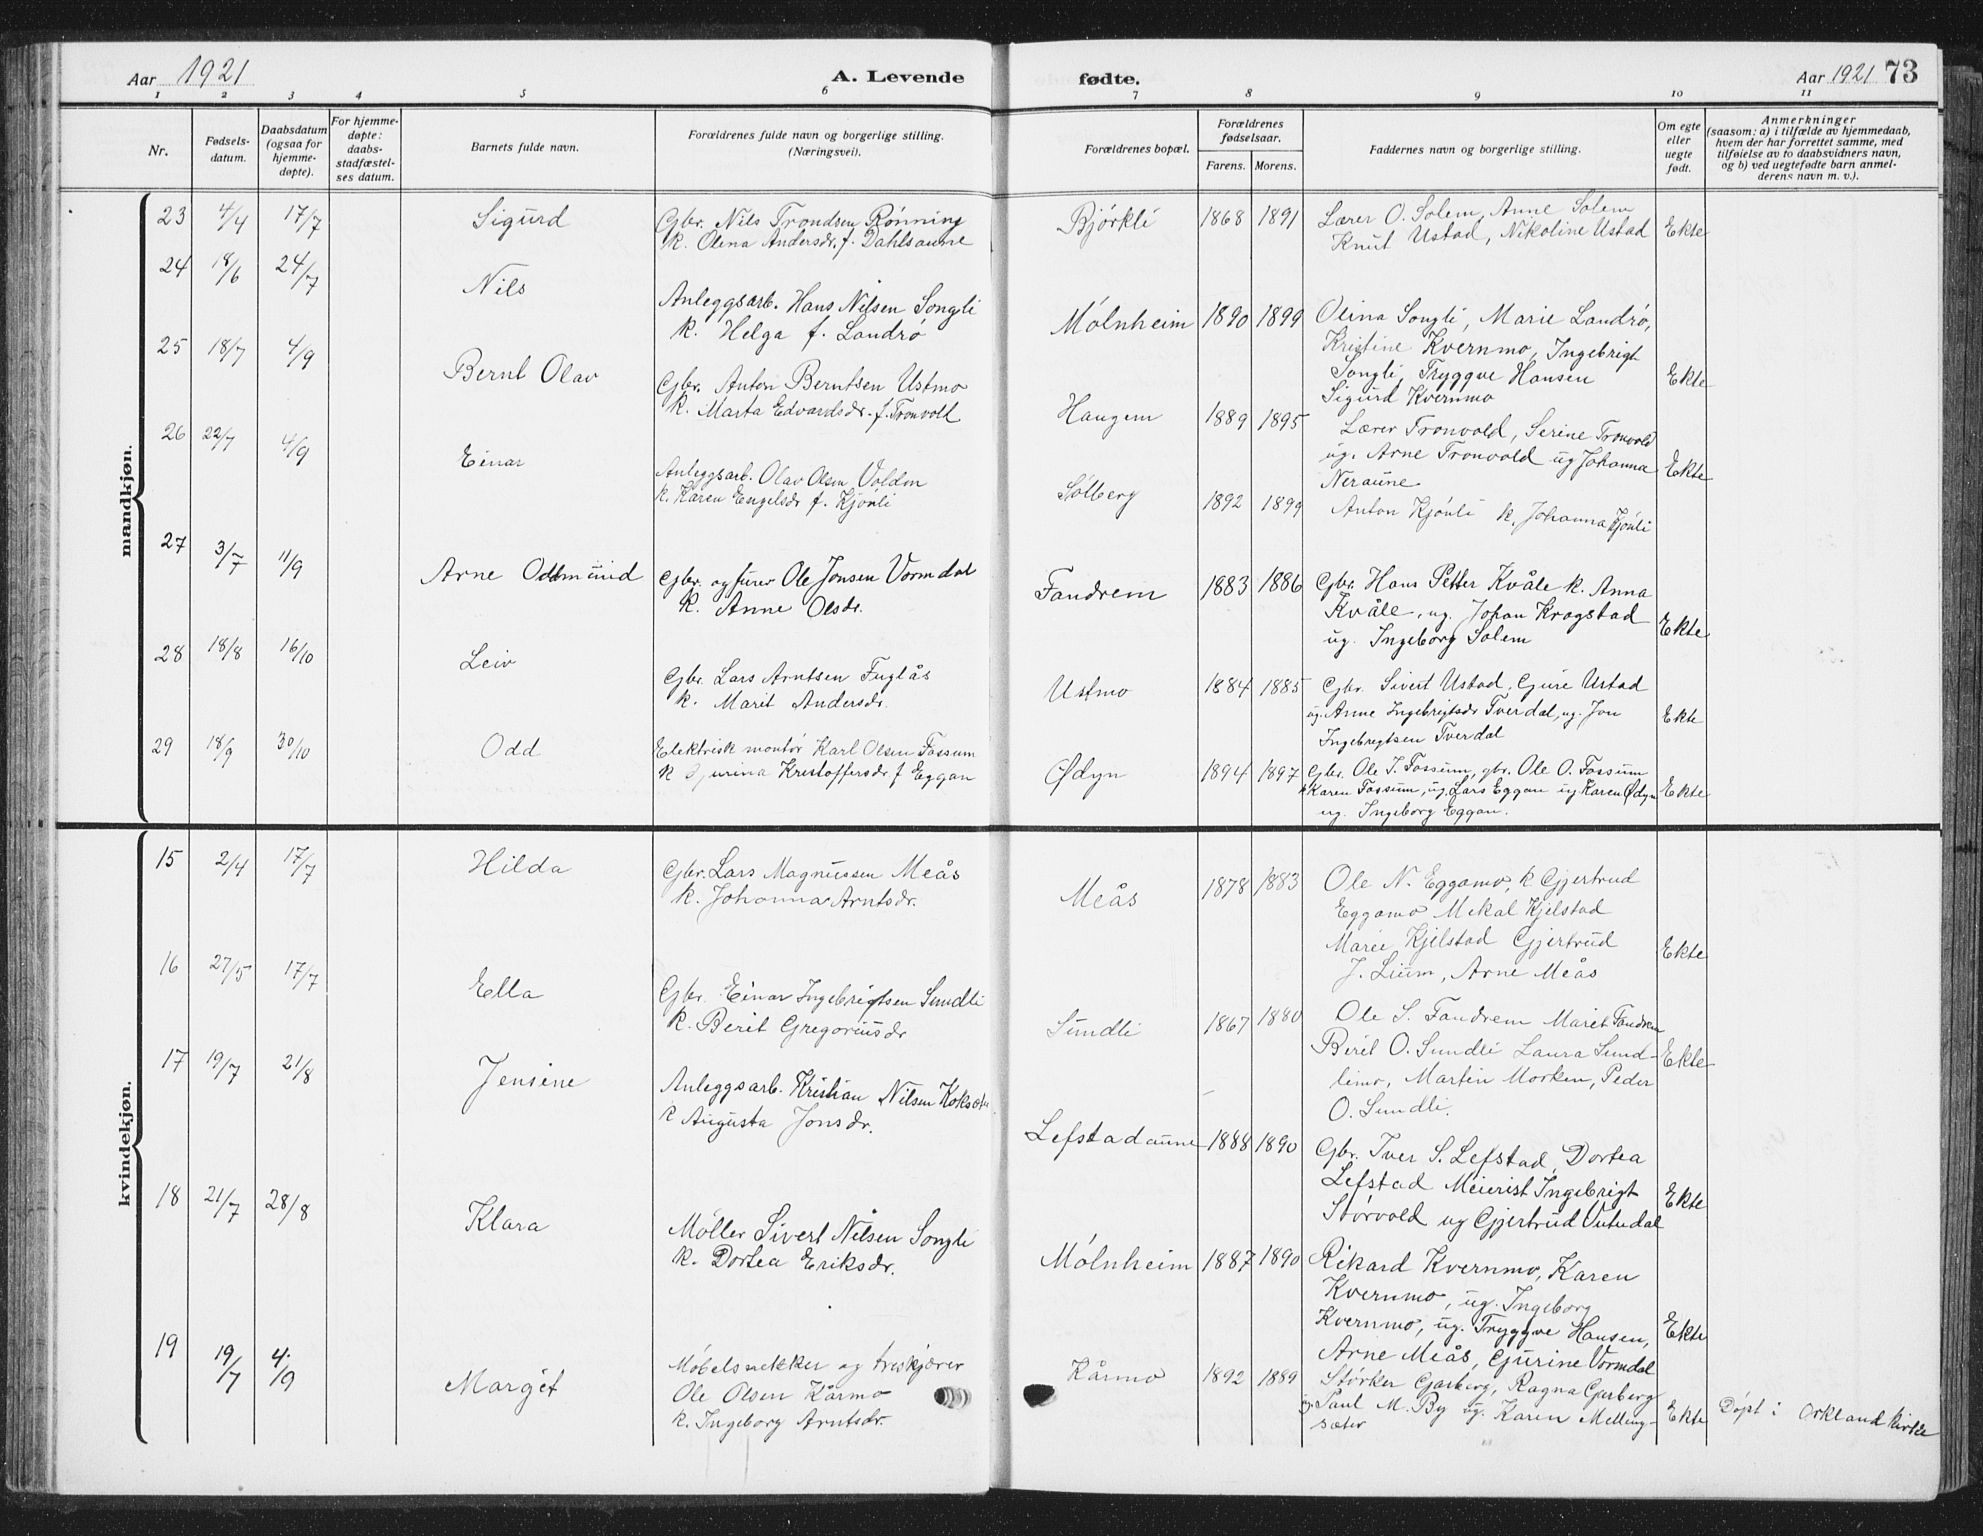 Aar 1921 A. Levende fødte. Aar 1921 73
1 2 3 4 5 6 7 8 9 10 11
Nr. Fødsels-datum. Daabsdatum (ogsaa for hjemme-døpte). For hjemme-døpte: daabs-stadfæstel-ses datum. Barnets fulde navn. Forældrenes fulde navn og borgerlige stilling. (Næringsvei). Forældrenes bopæl. Forældrenes fødselsaar. Farens. Morens. Faddernes navn og borgerlige stilling. Om egte eller uegte født. Anmerkninger (saasom: a) i tilfælde av hjemmedaab, hvem der har forrettet samme, med tilføielse av to daabsvidners navn, og b) ved uegtefødte barn anmel-derens navn m. v.).
mandkjøn.
23 4/4 17/7 Sigurd Gbr. Nils Trondsen Rønning Bjørkli 1868 1891 Lærer O. Solem, Anne Solem
k. Olena Andersdr. f. Dahlsaune Knut Ustad, Nikoline Ustad Ekte
24 18/6 24/7 Nils Anleggsarb. Hans Nilsen Songli Mólnheim 1890 1899 Olina Songli, Marie Landrø,
k. Helga f. Landrø Kristine Kvernmo, Ingebrigt
Songli, Tryggve Hansen Ekte
Sigurd Kvernmo
25 18/7 4/9 Bernt Olav Gbr. Anton Berntsen Ustmo Haugem 1889 1895 Lærer Tronvold, Serine Tronvold
k. Marta Edvardsdr. f. Tronvold ug. Arne Tronvold ug Johanna Ekte
Neraune
26 22/7 4/9 Einar Anleggsarb. Olav Olsen Volden Sólberg 1892 1899 Anton Kjónli k. Johanna Kjónli
k. Karen Engelsdr f. Kjónli
27 3/7 11/9 Arne Oddmund Gbr. og furer Ole Jonsen Vormdal Fandrem 1883 1886 Gbr. Hans Petter Kvåle k. Anna
k. Anne Olsdr. Kvåle, ug. Johan Krogstad
ug. Ingeborg Solem Ekte
28 18/8 16/10 Leiv Gbr. Lars Arntsen Fuglås Ustmo 1884 1885 Gbr. Sivert Ustad, Gure Ustad
k. Marit Andersdr. ug. Anne Ingebrigtsdr Tverdal, ug. Jon Ekte
Ingebregtsen Tverdal
29 18/9 30/10 Odd Elektrisk montór Karl Olsen Fossum Ødyn 1894 1897 Gbr. Ole I. Fossum, gbr. Ole O. Fossum
k Gjurina Krestoffersdr f Eggan k Karen Fossum, ug. Lars Eggan ug Karen Ødyn Ekte
ug. Ingeborg Eggan.
kvindekjøn.
15 2/4 17/7 Hilda Gbr. Lars Magnussen Meås Meås 1878 1883 Ole N. Eggamo, k. Gjertrud
k. Johanna Arntsdr. Eggamo Mekal Kjelstad
Marie Kjelstad Gjertrud
J. Lium, Arne Meås Ekte
16 27/5 17/7 Ella Gbr. Einar Ingebrigtsen Sundli Sundli 1867 1880 Ole S. Fandrem Marit Fandrem
k. Berit Gregoriusdr Berit O. Sundli Laura Sund- Ekte
limo, Martin Morken, Peder
O. Sundli.
17 19/7 21/8 Jensine Anleggsarb. Kristian Nilsen Koksæter Lefstadaune 1888 1890 Gbr. Iver S. Lefstad, Dortea
k Augusta Jonsdr. Lefstad Meierist Ingebrigt Ekte
Stórvold ug Gjertrud Vutudal
18 21/7 28/8 Klara Møller Sivert Nilsen Songli Mólnheim 1887 1890 Rikard Kvernmo, Karen
k. Dortea Eriksdr. Kvernmo, ug. Ingeborg
Kvernmo, ug. Tryggve Hansen, Ekte
Arne Meås, Gjurine Vormdal
19 19/7 4/9 Margit Møbelsnekker og treskjærer Kårmo 1892 1889 Størker Garberg, Ragna Garberg
Ole Olsen Kårmo ug Paul M. By ug. Karen Melling- Ekte Døpt i Orkland kirke
k. Ingeborg Arntsdr. sæter